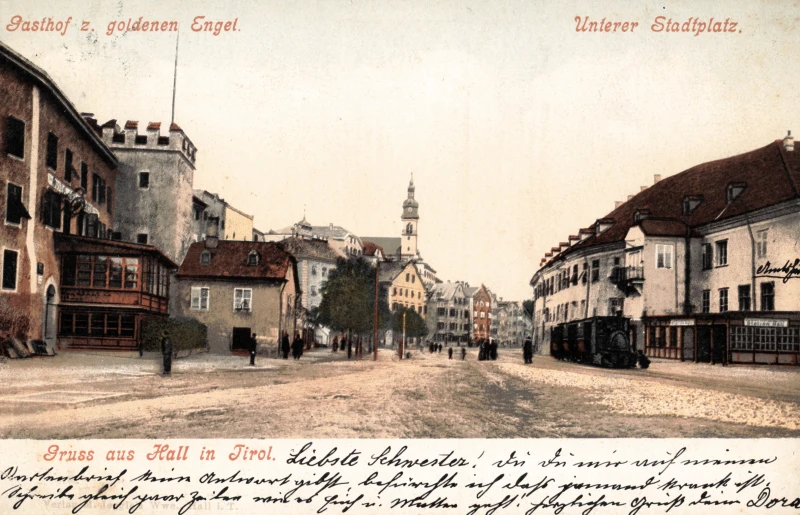 Gasthof z. goldenen Engel.
Unterer Stadtplatz.
Gruss aus Hall in Tirol.
Liebste Schwester! Du Du mir auf meinen
Kartenbrief, keine Antwort gibst, befürchte ich dass jemand krank ist.
Schreibe gleich paar Zeilen wie es Euch u. Mutter geht. herzlichen Gruß dein Dora
Verlag Wwe. Hall i. T.